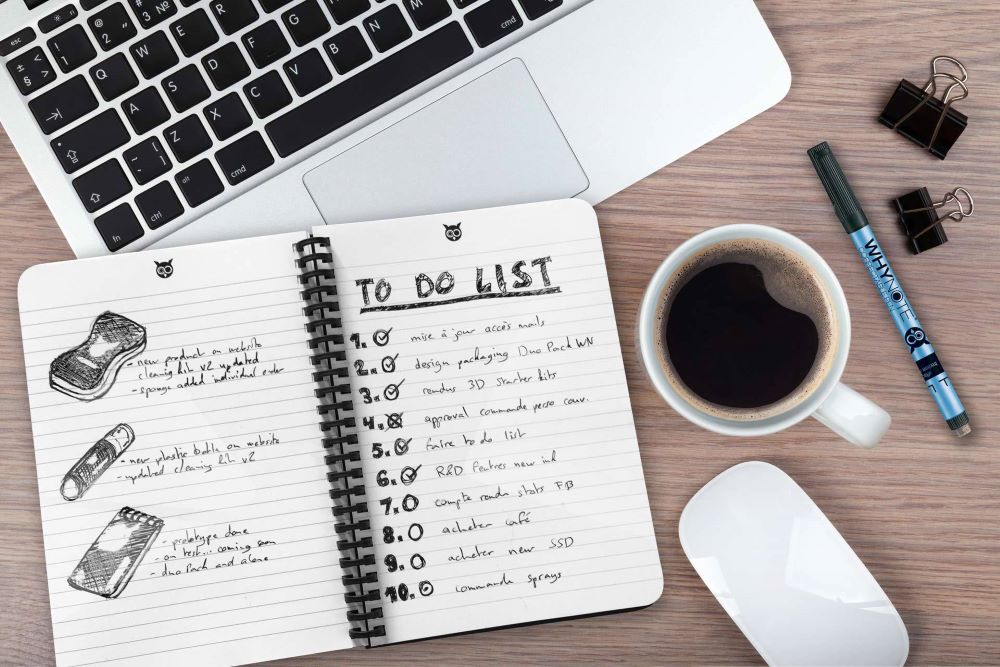 esc
! 1
@ 2
# 3
± § < >
Q W E R T Y U I
A S D F G H J K L
~ `
Z X C V B N M
fn
ctrl
alt
cmd
cmd
- new product on website
cleaning kit v2 updated
- sponge added individual order
- new plastic bottle on website
- updated cleaning kit v2
- prototype done
- on test... coming soon
- duo Pack and alone
TO DO LIST
1. mise à jour accès mails
2. design packaging Duo Pack WN
3. rendus 3D starter kits
4. approval commande perso couv.
5. faire to do list
6. R&D feutres new ink
7. compte rendu stats FB
8. acheter café
9. acheter new SSD
10. commande sprays
WHYNOTE